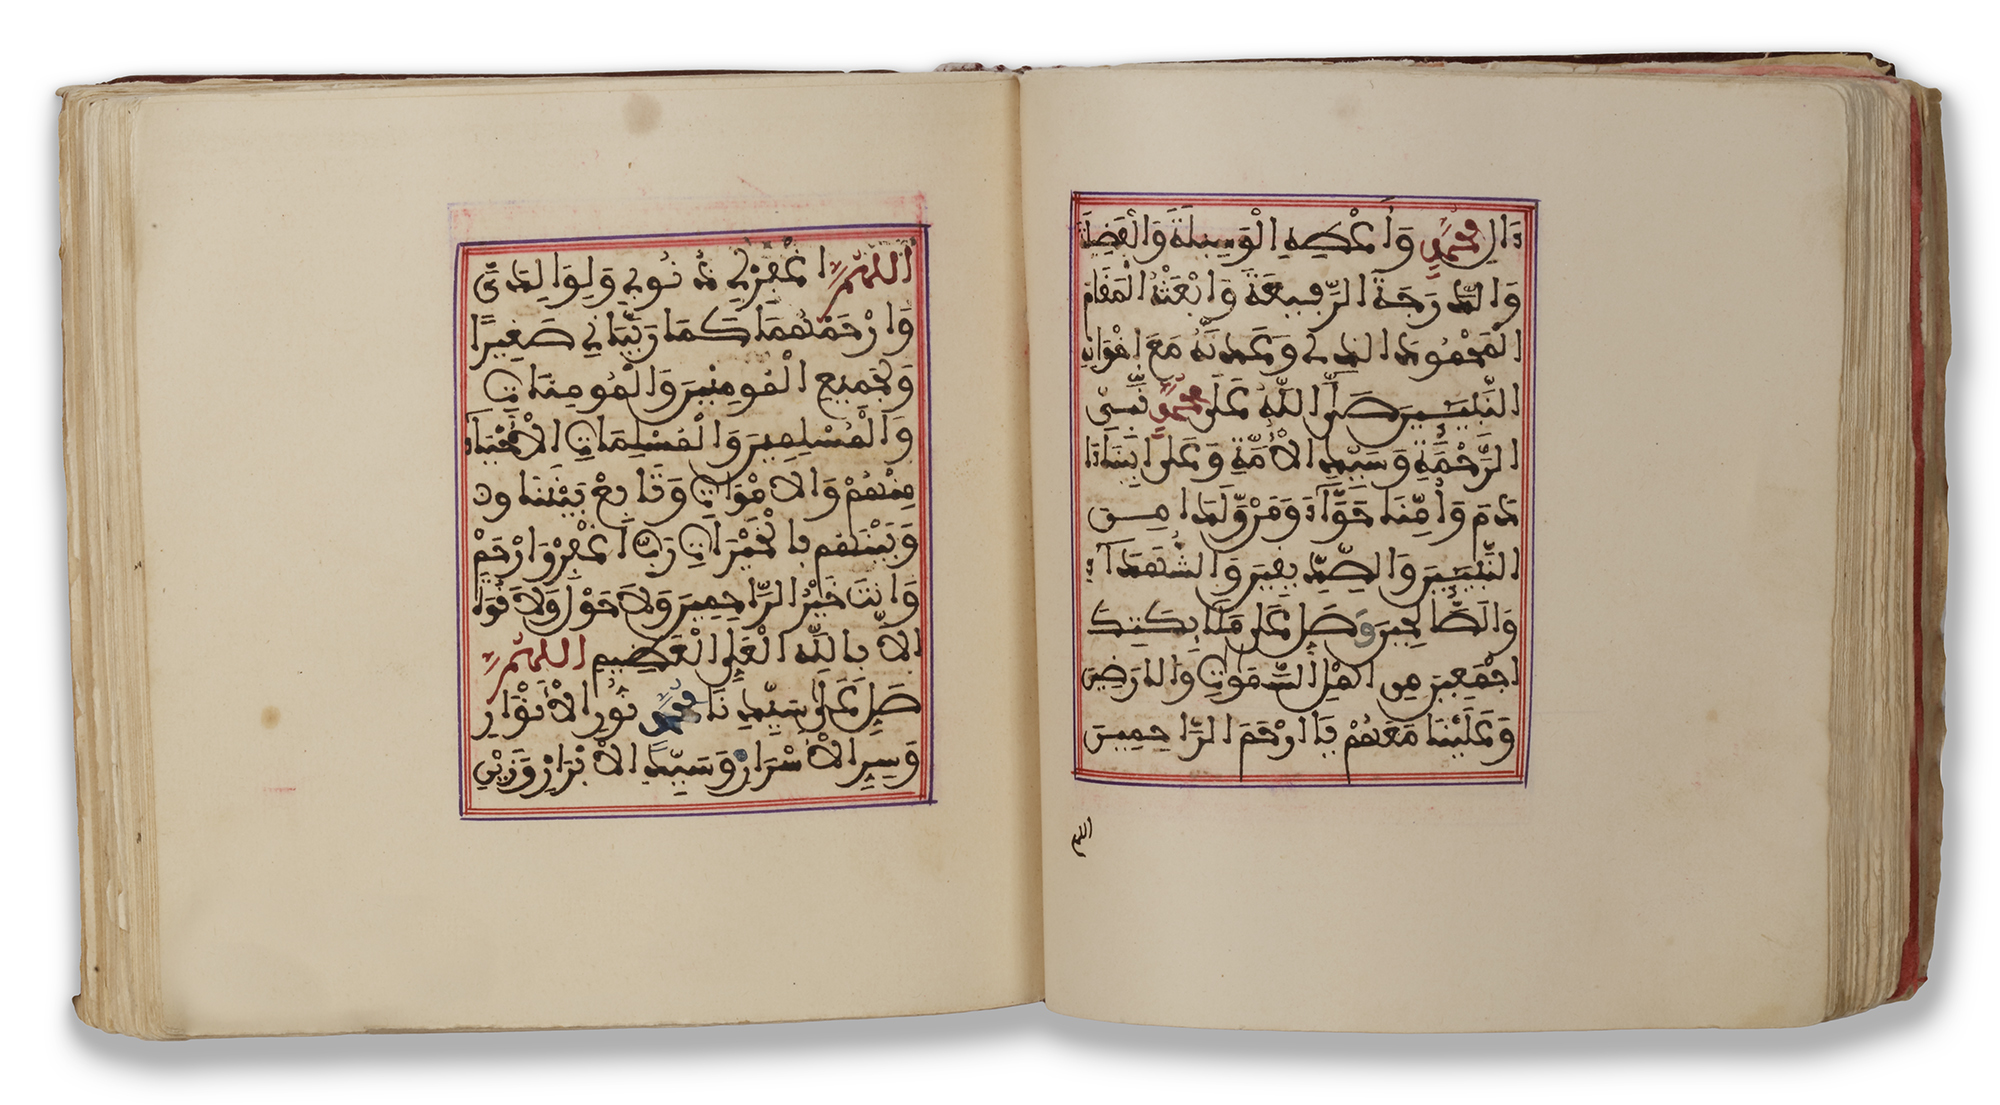 ءَالِ مُحَمَّدٍ وَأَعْطِهِ الْوَسِيلَةَ وَالْفَضِيلَةَ
وَالدَّرَجَةَ الرَّفِيعَةَ وَابْعَثْهُ الْمَقَامَ
الْمَحْمُودَ الَّذِي وَعَدتَّهُ مَعَ إِخْوَانِهِ
النَّبِيِّينَ صَلَّى اللَّهُ عَلَى مُحَمَّدٍ نَبِيِّ
الرَّحْمَةِ وَسَيِّدِ الْأُمَّةِ وَعَلَى أَبِينَا ءَا
دَمَ وَأُمِّنَا حَوَّاءَ وَمَنْ وَلَدَا مِنَ
النَّبِيِّينَ وَالصِّدِّيقِينَ وَالشُّهَدَآءِ
وَالصَّالِحِينَ وَصَلِّ عَلَى مَلَائِكَتِكَ
أَجْمَعِينَ مِنْ أَهْلِ السَّمَوَاتِ وَالْأَرَضِينَ
وَعَلَيْنَا مَعَهُمْ يَا أَرْحَمَ الرَّاحِمِينَ
اللهم
اللَّهُمَّ اغْفِرْ لِي ذُنُوبِي وَلِوَالِدَيَّ
وَارْحَمْهُمَا كَمَا رَبَّيَانِي صَغِيرًا
وَلِجَمِيعِ الْمُومِنِينَ وَالْمُومِنَاتِ
وَالْمُسْلِمِينَ وَالْمُسْلِمَاتِ الْأَحْيَآءِ
مِنْهُمْ وَالْأَمْوَاتِ وَتَابِعْ بَيْنَنَا
وَبَيْنَهُم بِالْخَيْرَاتِ رَبِّ اغْفِرْ وَارْحَمْ
وَأَنتَ خَيْرُ الرَّاحِمِينَ وَلَا حَوْلَ وَلَا قُوَّةَ
إِلَّا بِاللَّهِ الْعَلِيِّ الْعَظِيمِ اللَّهُمَّ
صَلِّ عَلَى سَيِّدِنَا مُحَمَّدٍ نُورِ الْأَنْوَارِ
وَسِرِّ الْأَسْرَارِ وَسَيِّدِ الْأَبْرَارِ وَزَيْنِ